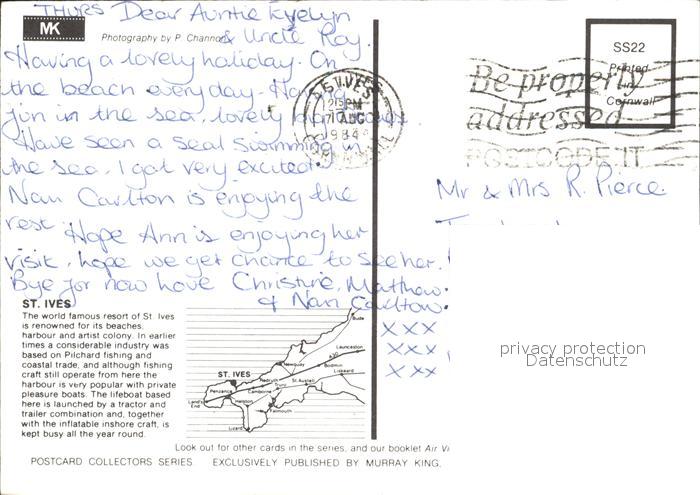 THURS Dear Auntie Evelyn
& Uncle Ray.
Having a lovely holiday. On
the beach everyday. Having
fun in the sea, lovely
Have seen a seal swimming in
the sea. I got very excited!
Nan Carlton is enjoying the
rest Hope Ann is enjoying her
visit, hope we get chance to see her.
Bye for now Love Christine, Matthew
& Nan Carlton.
xxx
xxx
xxx
MK
Photography by P. Channon
ST. IVES
12 15 PM
AUG
1984
CORNWALL
Be properly
addressed
POSTCODE IT
SS22
Printed
in
Cornwall
Mr & Mrs R. Pierce.
ST. IVES
The world famous resort of St. Ives
is renowned for its beaches,
harbour and artist colony. In earlier
times a considerable industry was
based on Pilchard fishing and
coastal trade, and although fishing
craft still operate from here the
harbour is very popular with private
pleasure boats. The lifeboat based
here is launched by a tractor and
trailer combination and, together
with the inflatable inshore craft, is
kept busy all the year round.
Bude
Launceston
A30
Newquay
Bodmin
Liskeard
ST. IVES
Redruth
Truro
St. Austell
Penzance
Camborne
Land's
End
Helston
Falmouth
Lizard
privacy protection
Datenschutz
Look out for other cards in the series, and our booklet Air Vi
POSTCARD COLLECTORS SERIES EXCLUSIVELY PUBLISHED BY MURRAY KING,